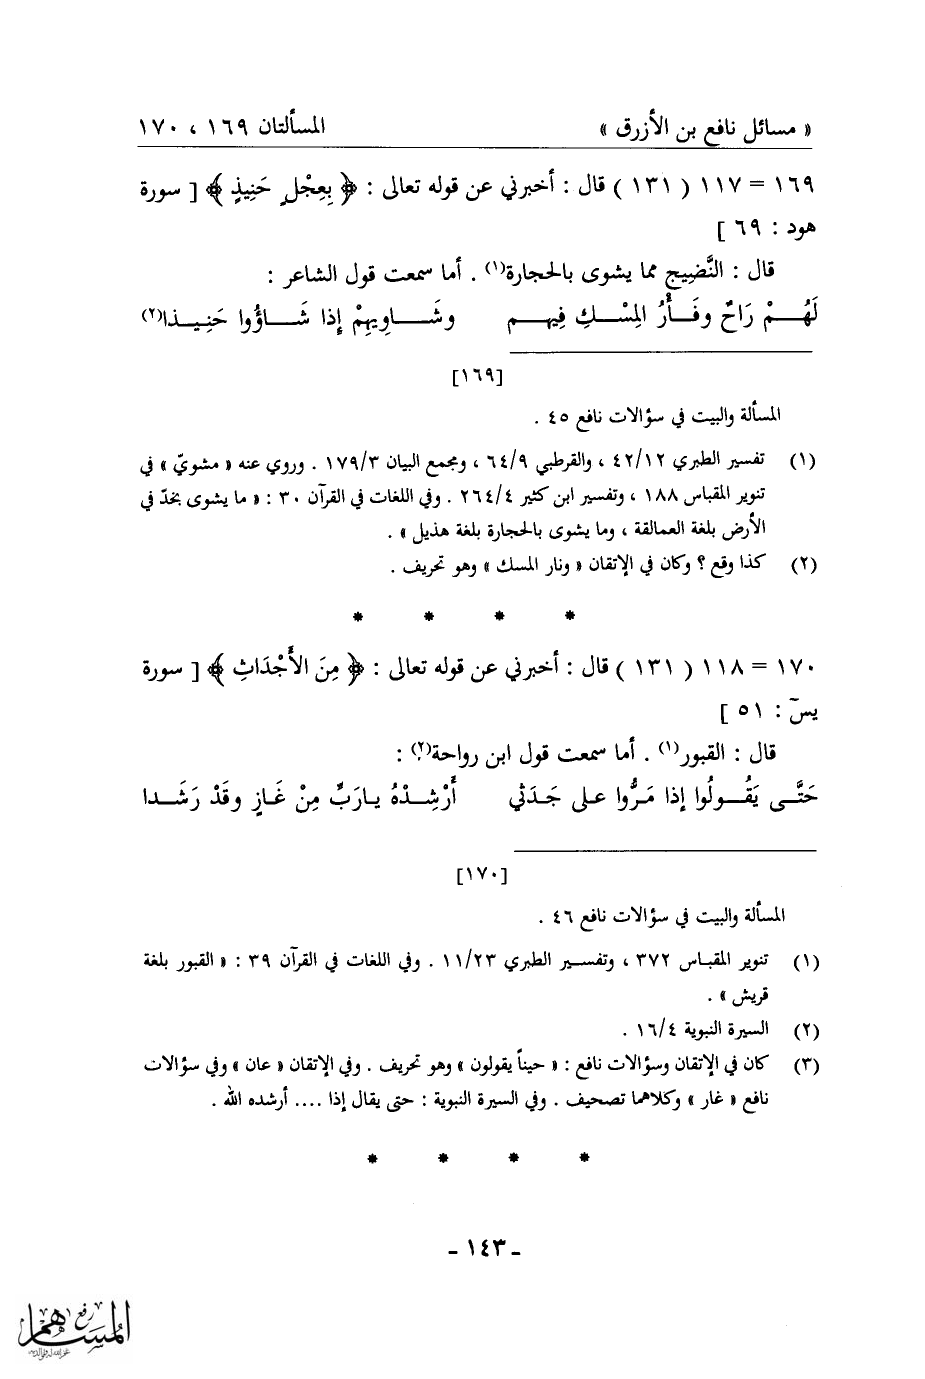 « مسائل نافع بن الأزرق » المسألتان ١٦٩ ، ١٧٠
١٦٩ = ١١٧ ( ١٣١ ) قال : أخبرني عن قوله تعالى : ﴿ بِعِجْلٍ حَنِيذٍ ﴾ [ سورة
هود : ٦٩ ]
قال : النَّضِيج مما يشوى بالحجارة(١) . أما سمعت قول الشاعر :
لَهُـــمْ رَاحٌ وفَـــأْرُ المِسْـــكِ فِيهـــم وشَـــاوِيهِمْ إِذا شَـــاؤُوا حَنِيـــذا(٢)
[١٦٩]
المسألة والبيت في سؤالات نافع ٤٥ .
(١) تفسير الطبري ٤٢/١٢ ، والقرطبي ٦٤/٩ ، ومجمع البيان ١٧٩/٣ . وروي عنه « مشويّ » في
تنوير المقباس ١٨٨ ، وتفسير ابن كثير ٢٦٤/٤ . وفي اللغات في القرآن ٣٠ : « ما يشوى بخدّ في
الأرض بلغة العمالقة ، وما يشوى بالحجارة بلغة هذيل » .
(٢) كذا وقع ؟ وكان في الإتقان « ونار المسك » وهو تحريف .
* * * *
١٧٠ = ١١٨ ( ١٣١ ) قال : أخبرني عن قوله تعالى : ﴿ مِنَ الأَجْدَاثِ ﴾ [ سورة
يسٓ : ٥١ ]
قال : القبور(١) . أما سمعت قول ابن رواحة(٢) :
حَتَّـــى يَقُـــولُوا إذا مَـرُّوا علـى جَـدَثي أَرْشِـدْهُ يـارَبِّ مِنْ غَـازٍ وقَدْ رَشَـــدا
[١٧٠]
المسألة والبيت في سؤالات نافع ٤٦ .
(١) تنوير المقباس ٣٧٢ ، وتفسير الطبري ١١/٢٣ . وفي اللغات في القرآن ٣٩ : « القبور بلغة
قريش » .
(٢) السيرة النبوية ١٦/٤ .
(٣) كان في الإتقان وسؤالات نافع : « حيناً يقولون » وهو تحريف . وفي الإتقان « عان » وفي سؤالات
نافع « غار » وكلاهما تصحيف . وفي السيرة النبوية : حتى يقال إذا .... أرشده الله .
* * * *
ـ ١٤٣ ـ
رفع
المساهم